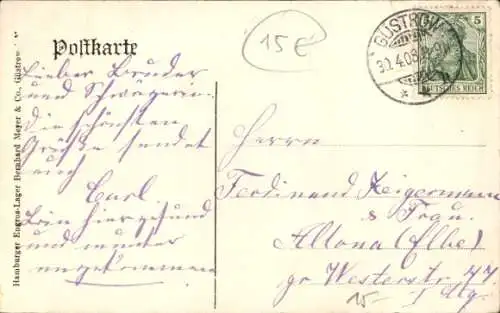 Postkarte
15 €
GÜSTROW
30.4.08
5
DEUTSCHES REICH
Hamburger Engros-Lager Bernhard Meyer & Co., Güstrow
Lieber Bruder
und Schwägerin
die schönsten
Grüße sendet
euch
Carl.
Bin hier gesund
und munter
angekommen
Herrn
Ferdinand Zeigermann
& Frau.
Altona (Elbe)
gr Westerstr 77
I Etg.
15-